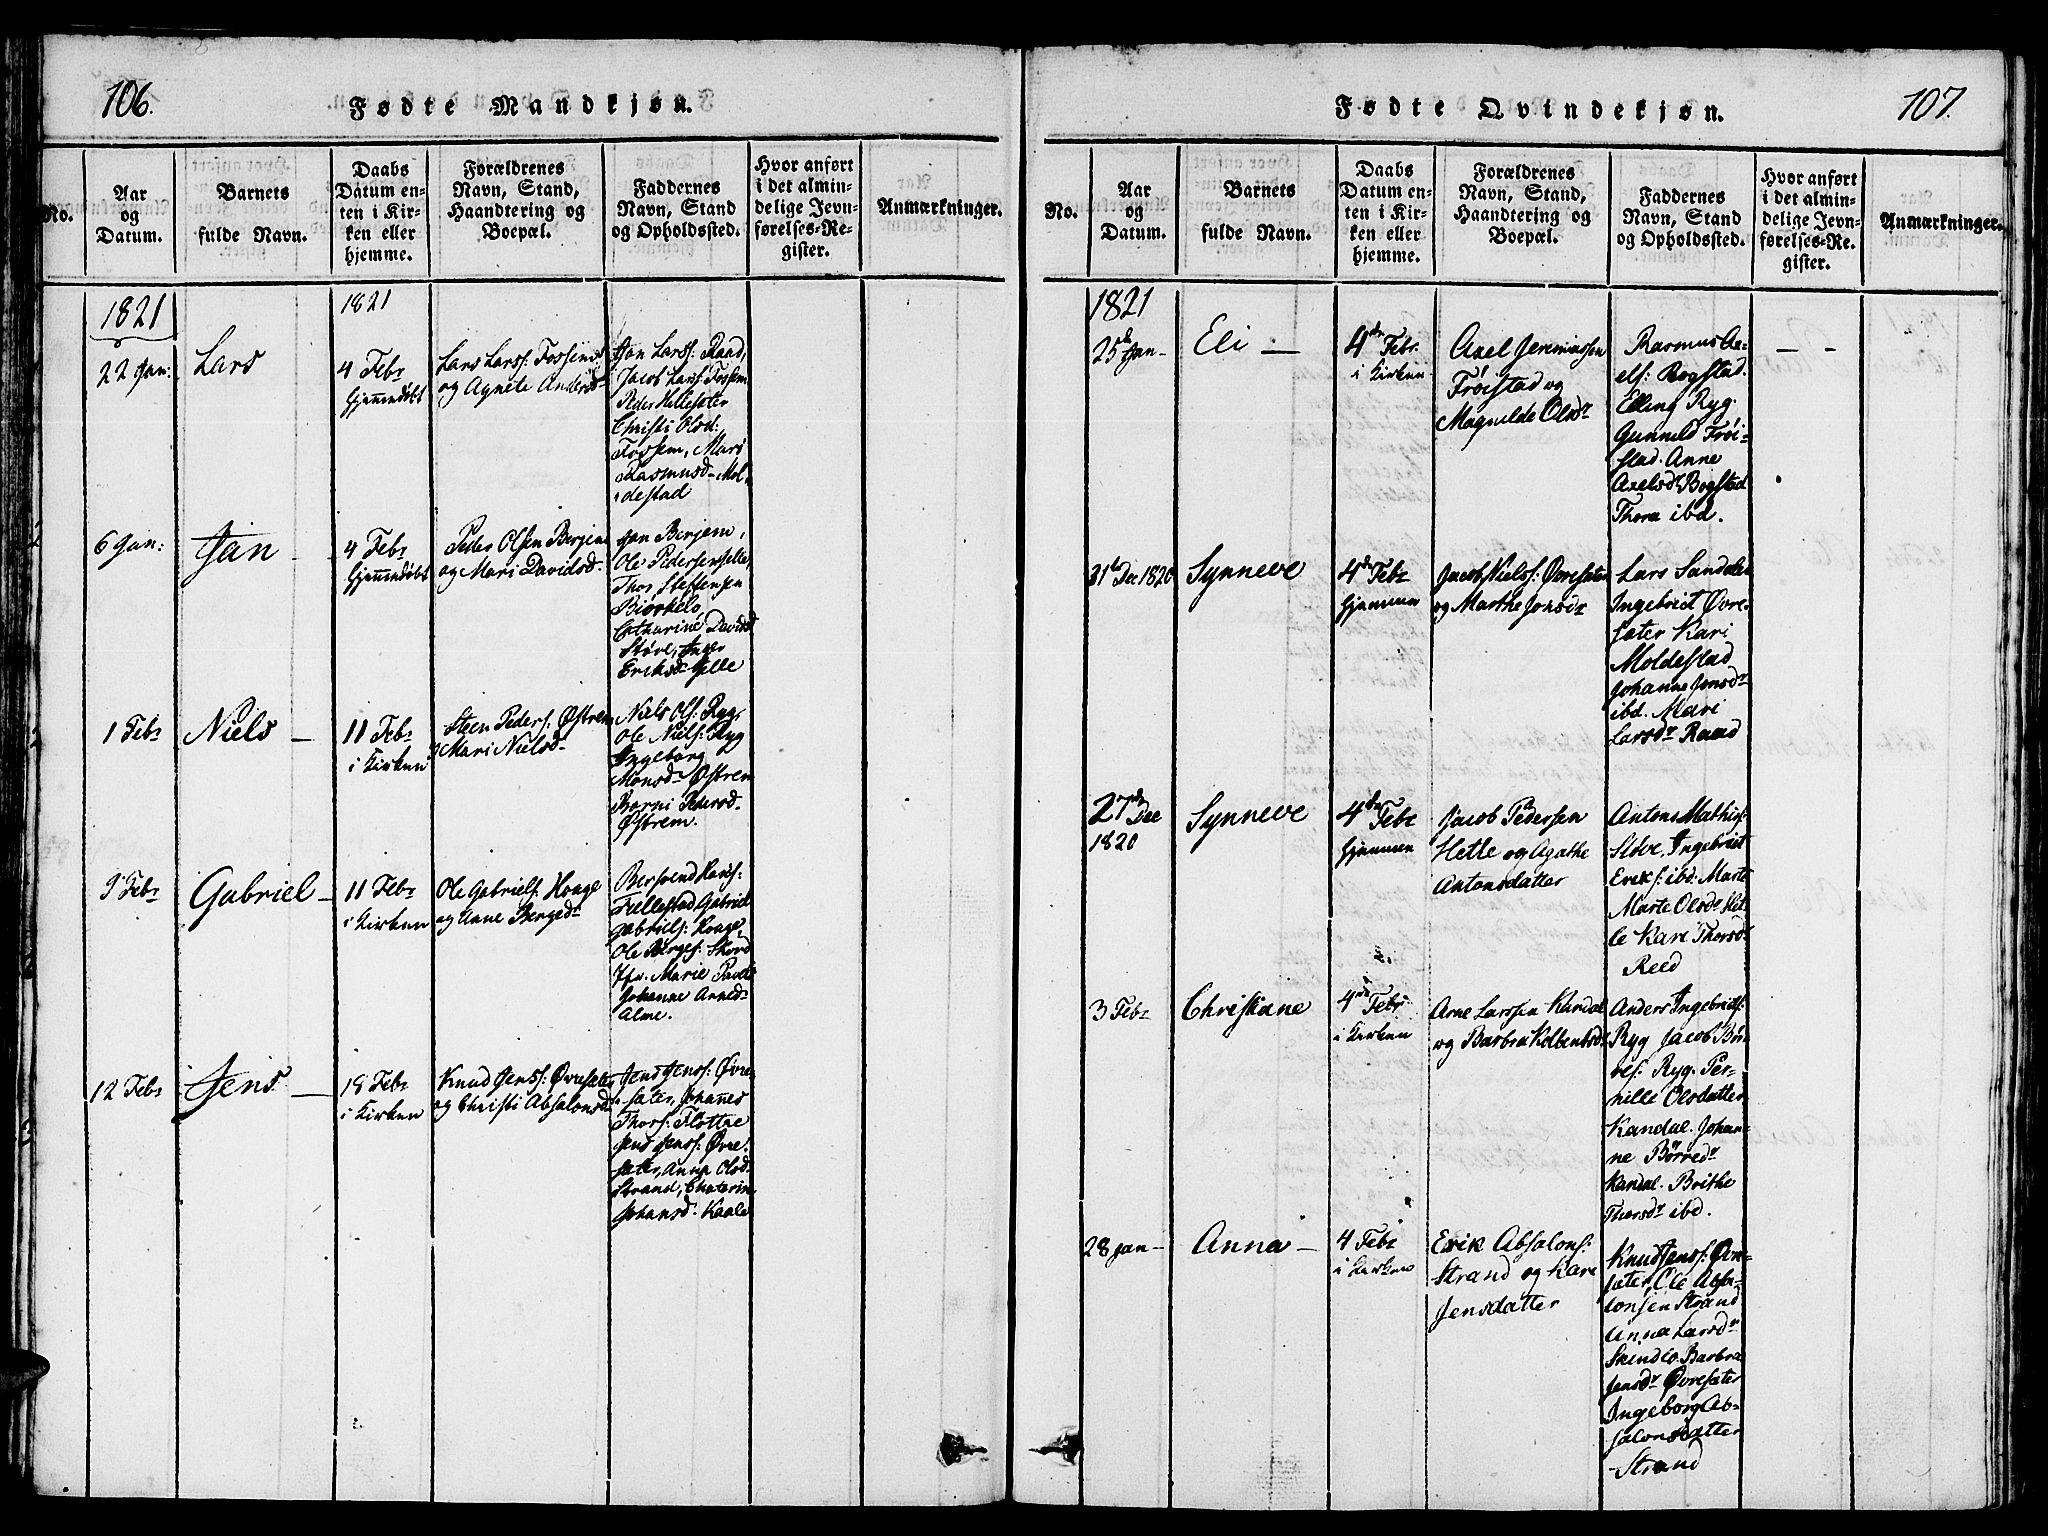 106.
Fødte Mandkjøn.
No.
Aar
og
Datum.
Barnets
fulde Navn.
Daabs
Datum en-
ten i Kir-
ken eller
hjemme.
Forældrenes
Navn, Stand,
Haandtering og
Boepæl.
Faddernes
Navn, Stand
og Opholdssted.
Hvor anført
i det almin-
delige Jevn-
førelses-Re-
gister.
Anmærkninger.
1821
22 Jan:
Lars
1821
4 Febr
Hjemmedøbt
Lars Larss: Fossem
og Agnete Andersd
Jan Larss: Raad,
Jacob Larss: Fossem
Peder Hellesæter
Christi Olsd:
Fossem, Mari
Rasmusd- Mol-
destad
6 Jan:
Jan -
4 Febr
Hjemmedøbt
Peder Olsen Berjem
og Mari Davidsd.
Jan Berjem,
Ole Pedersen
Thor Steffensen
Biørkelo,
Catharine Davidsd
Støve, Inger
Eriksd Hjelle
1 Febr
Niels -
11 Febr
i Kirken
Steen Peders: Østrem
Mari Nielsd-
Niels Ols: Ryg,
Ole Niels: Ryg
Ingeborg
Monsd- Østrem
Borni Pedersd-
Østrem.
9 Febr
Gabriel -
11 Febr
i Kirken
Ole Gabriels: Hauge
og Anne Berged-
Bersvend Hans:
Fellestad Gabriel
Gabriels: Hauge,
Ole Berges:
Marie
Johanne Arned-
Alme.
12 Febr
Jens -
18 Febr
i Kirken
Knud Jenss: Øvresæter
og Christi Absalonsd
Jens Jenss: Øvre-
sæter, Johanes
Thors: Flottre
Jens Jenss: Øvre-
sæter, Anna Olsd.
Strand, Chaterin
Johansd- Kaale
107.
Fødte Qvindekjøn.
No.
Aar
og
Datum.
Barnets
fulde Navn.
Daabs
Datum en-
ten i Kir-
ken eller
hjemme.
Forældrenes
Navn, Stand,
Haandtering og
Boepæl.
Faddernes
Navn, Stand
og Opholdssted.
Hvor anført
i det almin-
delige Jevn-
førelses-Re-
gister.
Anmærkninger.
1821
25de Jan-
Eli -
4de Febr.
i Kirken
Axel Jeremiassen
Frøistad og
Magnilde Olsdr
Rasmus Ax-
els: Bogstad.
Elling Ryg.
Gunnild Frøi-
stad. Anne
Axelsdr Bogstad
Thora ibd.
31te Dec 1820
Synneve
4de Febr
Hjemmen
Jacob Niels: Øvresæter
og Marthe Jonsdr
Lars Sandal
Ingebrict Øvre-
sæter Kari
Moldestad
Johanne Jonsdr
ibd. Mari
Larsdr Raad
27de Dec
1820
Synneve
4de Febr
Hjemmen
Jacob Pedersen
Hetle og Agathe
Antonsdatter
Anton Mathis:
Støve, Ingebrict
Eriks: ibd. Marte
Marte Olsdr Het-
le Kari Thorsdr
Reed
3 Febr
Christiane
4de Febr.
i Kirken
Arne Larssen Kandal
og Barbra Kolbensdr
Anders Ingebrictss:
Ryg Jacob Bør-
res: Ryg. Per-
nille Olsdatter
Kandal. Johan-
ne Børredr
Kandal. Brithe
Thorsdr ibd.
28 Jan-
Anna -
4 Febr
i Kirken
Erik Absalons:
Strand og Kari
Jensdatter
Knud Jenss: Øvre-
sæter, Ole Absa-
lonsen Strand
Anna Larsdr
Skindlo. Barbra
Jensdr Øvresæter
Ingeborg Ab-
salonsdatter
-Strand